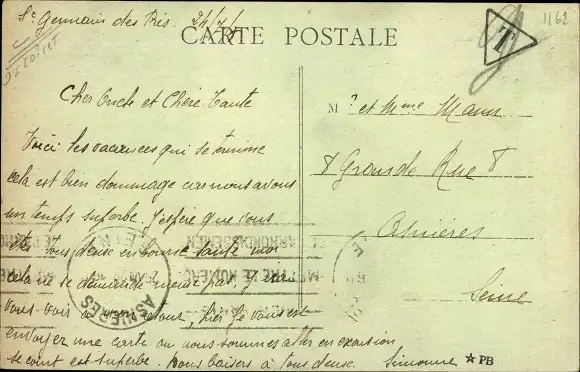 St Germain des Prés. 24/7/
CARTE POSTALE
T
1162
Cher Oncle et Chère Tante
Voici les vacances qui se termine
cela est bien dommage car nous avons
un temps superbe. J'espère que vous
êtes tous deux en bonne santé moi
cela ne se demande même pas, j'irai
vous voir à mon retour, hier je vous ai
envoyer une carte où nous sommes allés en excursion,
le coin est superbe. Bons baisers à tous deux. Simonne
Mr et Mme Mann
8 Grande Rue 8
Asnières
Seine
METTRE LE NUMERO
ARRONDISSEMEN
ASNIERES
★ PB